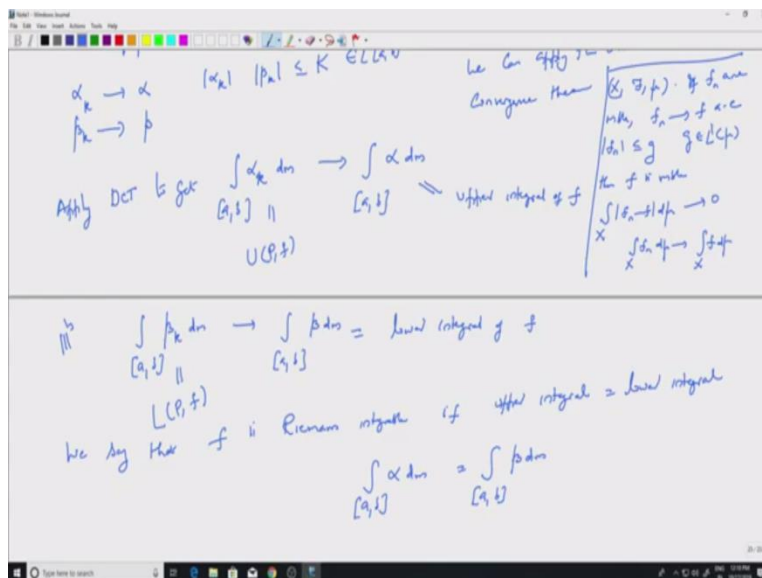 Note1 - Windows Journal
File Edit View Insert Actions Tools Help
|α_k| |β_k| ≤ K ∈ L
α_k → α
β_k → β
We can apply
Convergence thm
(X, F, μ). If f_n are
mble, f_n → f a.e
|f_n| ≤ g g ∈ L¹(μ)
then f is mble
∫_X |f_n - f| dμ → 0
∫_X f_n dμ → ∫_X f dμ
Apply DCT to get ∫_[a,b] α_k dm → ∫_[a,b] α dm = upper integral of f
||
U(P, f)
|||ly ∫_[a,b] β_k dm → ∫_[a,b] β dm = lower integral of f
||
L(P, f)
We say that f is Riemann integrable if upper integral = lower integral
∫_[a,b] α dm = ∫_[a,b] β dm
Type here to search